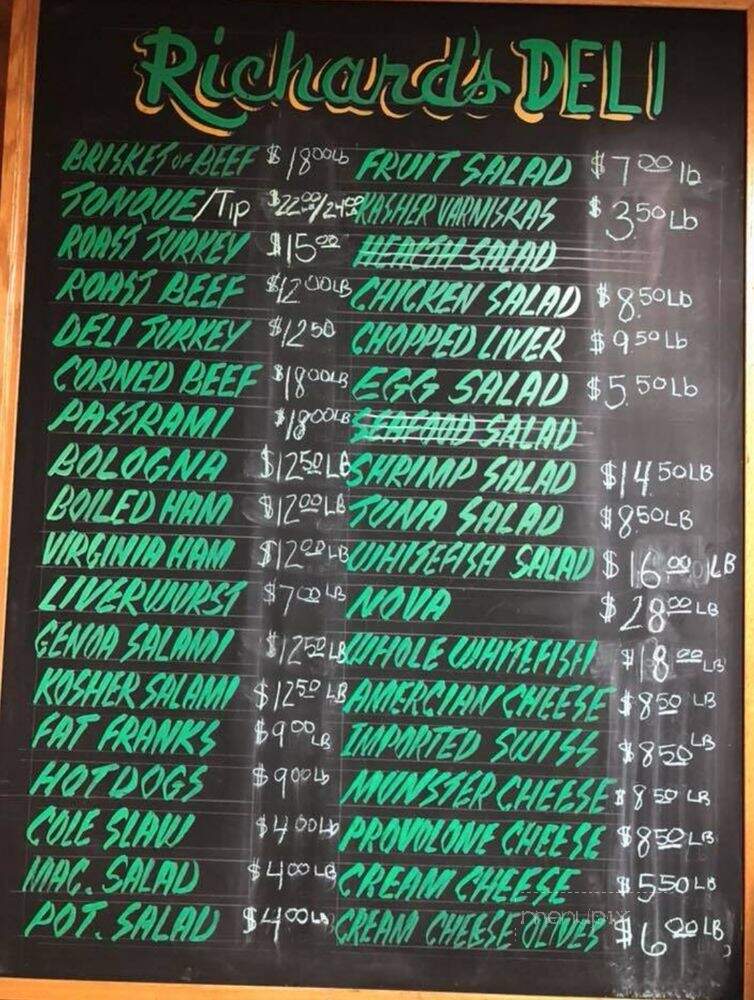 Richard's DELI
BRISKET OF BEEF $18 00 Lb
TONQUE/Tip $22 00/24 00
ROAST TURKEY $15 00
ROAST BEEF $12 00 LB
DELI TURKEY $12 50
CORNED BEEF $18 00 LB
PASTRAMI $18 00 LB
BOLOGNA $12 50 LB
BOILED HAM $12 00 LB
VIRGINIA HAM $12 00 LB
LIVERWURST $7 00 LB
GENOA SALAMI $12 50 LB
KOSHER SALAMI $12 50 LB
FAT FRANKS $9 00 LB
HOTDOGS $9 00 lb
COLE SLAW $4 00 Lb
MAC. SALAD $4 00 LB
POT. SALAD $4 00 LB
FRUIT SALAD $7 00 lb
KASHER VARNISKAS $3.50 Lb
HEALTH SALAD
CHICKEN SALAD $8.50 Lb
CHOPPED LIVER $9.50 Lb
EGG SALAD $5.50 Lb
SEAFOOD SALAD
SHRIMP SALAD $14.50 LB
TUNA SALAD $8.50 LB
WHITEFISH SALAD $16.00 LB
NOVA $28 00 LB
WHOLE WHITEFISH $18 00 LB
AMERCIAN CHEESE $8 50 LB
IMPORTED SWISS $8 50 LB
MUNSTER CHEESE $8 50 LB
PROVOLONE CHEESE $8 50 LB
CREAM CHEESE $5 50 LB
CREAM CHEESE OLIVES $6 00 LB
menupix